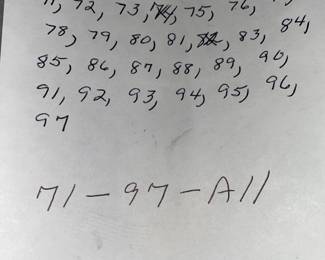 71, 72, 73, 74, 75, 76,
78, 79, 80, 81, 82, 83, 84,
85, 86, 87, 88, 89, 90,
91, 92, 93, 94, 95, 96,
97
71-97-All